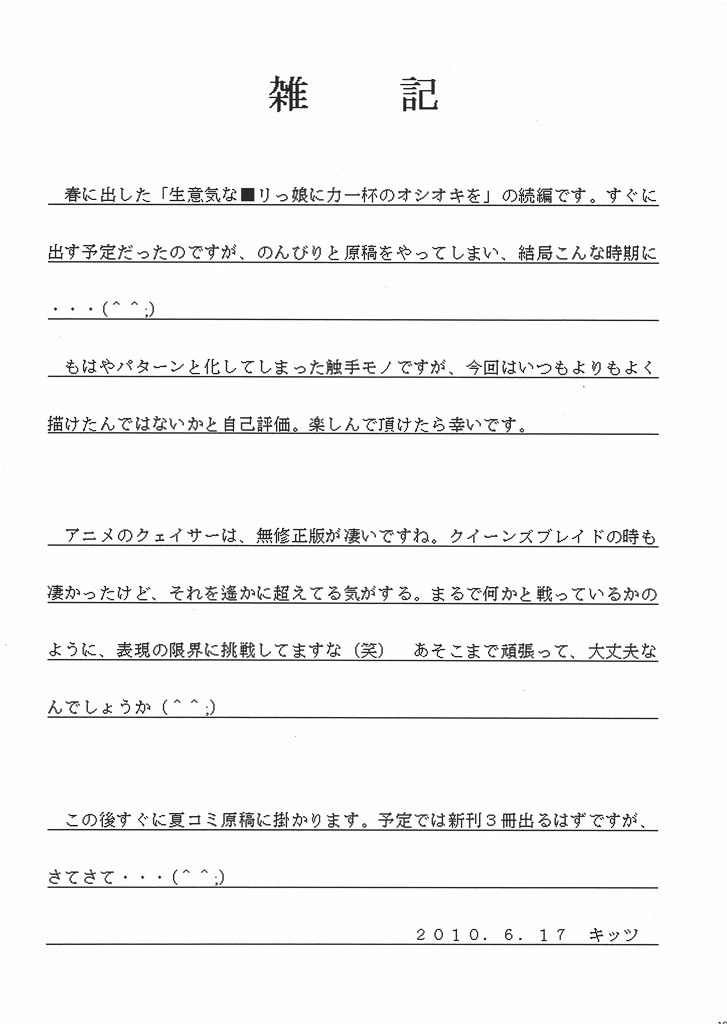 雑　記
春に出した「生意気な■リっ娘に力一杯のオシオキを」の続編です。すぐに
出す予定だったのですが、のんびりと原稿をやってしまい、結局こんな時期に
・・・(＾＾;)
もはやパターンと化してしまった触手モノですが、今回はいつもよりもよく
描けたんではないかと自己評価。楽しんで頂けたら幸いです。
アニメのクェイサーは、無修正版が凄いですね。クイーンズブレイドの時も
凄かったけど、それを遙かに超えてる気がする。まるで何かと戦っているかの
ように、表現の限界に挑戦してますな（笑）　あそこまで頑張って、大丈夫な
んでしょうか（＾＾;）
この後すぐに夏コミ原稿に掛かります。予定では新刊３冊出るはずですが、
さてさて・・・(＾＾;)
２０１０．６．１７　キッツ